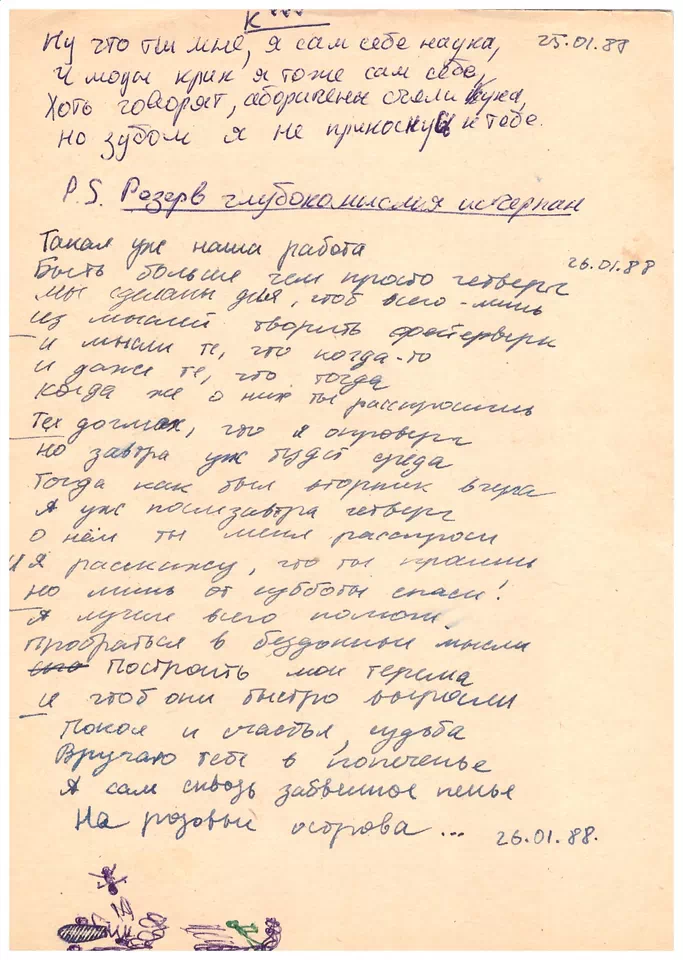 К ***
Ну что ты мне, я сам себе наука, 25.01.88
И моды крик я тоже сам себе,
Хоть говорят, аборигены съели Кука,
Но зубом я не прикоснусь к тебе.
P.S. Резерв глубокомыслия исчерпан
Такая уж наша работа 26.01.88
Быть больше чем просто четверг
Мы сделаны для, чтоб всего-лишь
Из мыслей творить фейерверк
И мысли те, что когда-то
И даже те, что тогда
Когда же о них ты расспросишь
Тех догмах, что я опроверг
Но завтра уж будет среда
Тогда как был вторник вчера
А уж послезавтра четверг
О нём ты меня расспроси
И я расскажу, что ты просишь
Но лишь от субботы спаси!
А лучше всего помоги
Пробраться в бездонные мысли
Построить мои терема
И чтоб они быстро выросли
Покоя и счастья, судьба
Вручаю тебе в попеченье
А сам сквозь забвенное пенье
На розовые острова... 26.01.88.